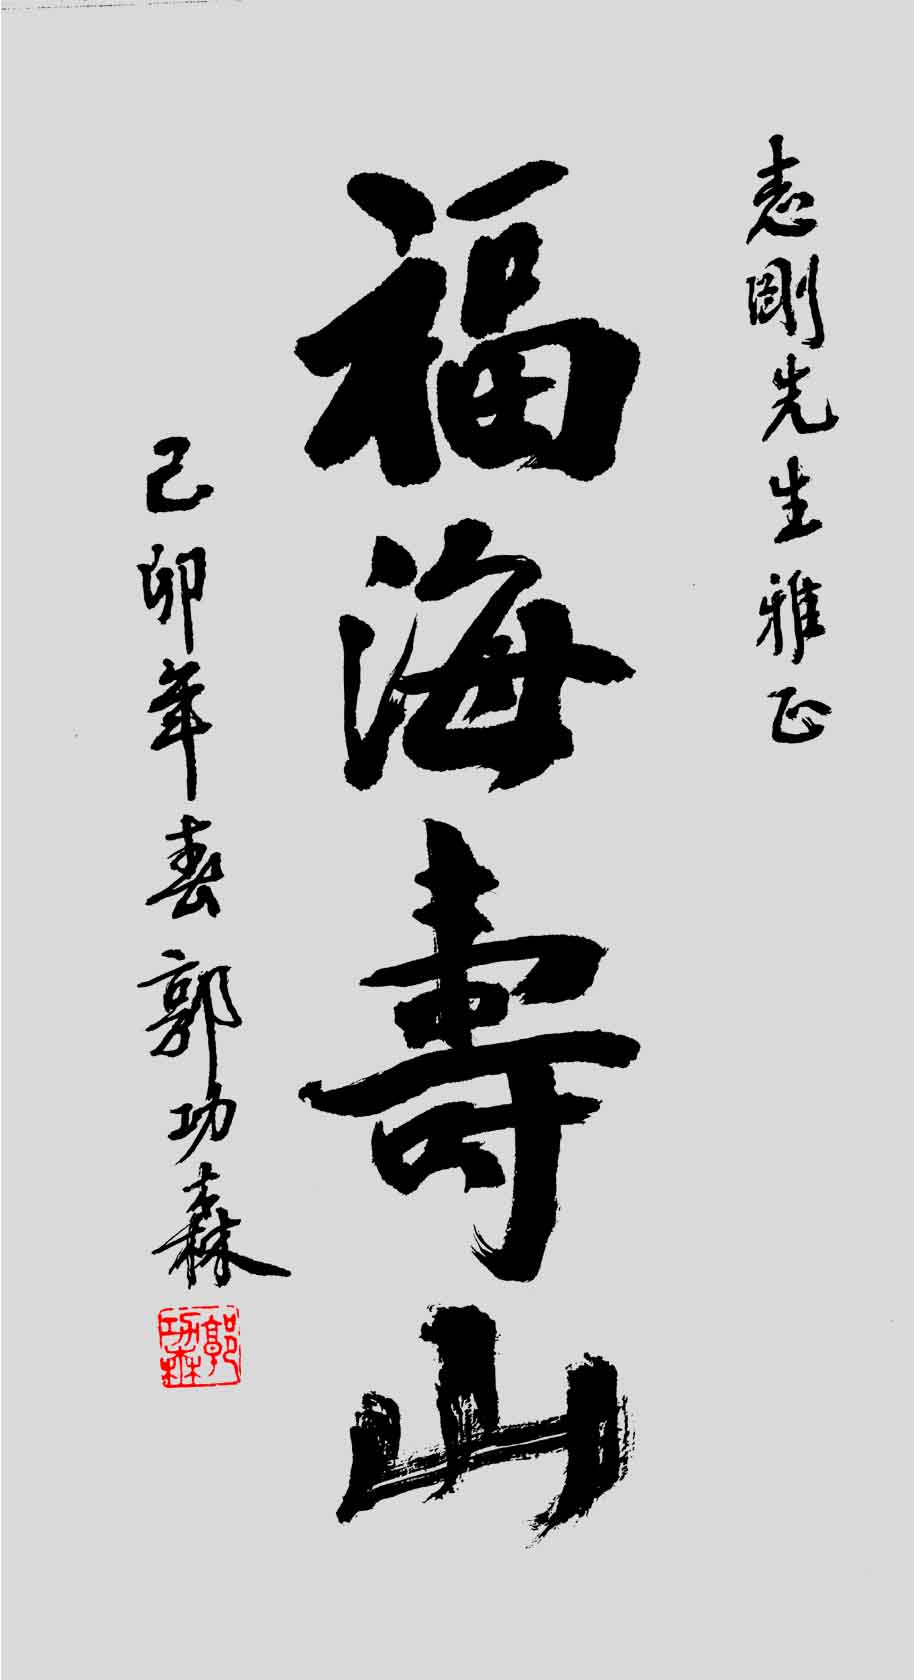 志剛先生雅正
福海壽山
己卯年春郭功森
郭功森